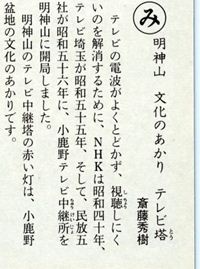 み
明神山　文化のあかり　テレビ塔
とう
斎藤秀樹
テレビの電波がよくとどかず、視聴しにく
しちょう
いのを解消するために、NHKは昭和四十年、
テレビ埼玉が昭和五十五年、そして、民放五
社が昭和五十六年に、小鹿野テレビ中継所を
ちゅうけいじょ
明神山に開局しました。
明神山のテレビ中継塔の赤い灯は、小鹿野
盆地の文化のあかりです。